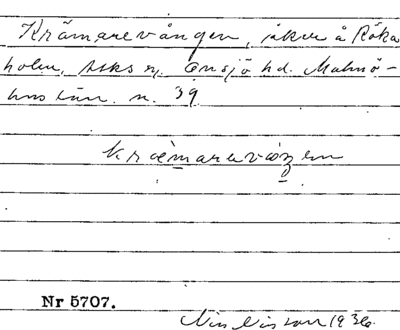 Krämarevången, åker å Röka
holen, sks n, Onsjö hd. Malmö-
hus län. n. 39
kræmaravåŋen
Nr 5707.
Nils Nilsson 1936.